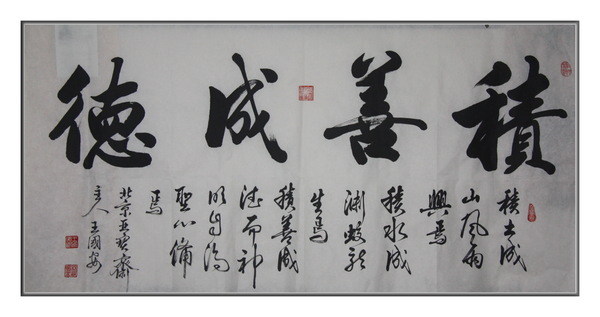 積善成德
積土成
山風雨
興焉
積水成
淵蛟龍
生焉
積善成
德而神
明自得
聖心備
焉
北京齋
主人王國安